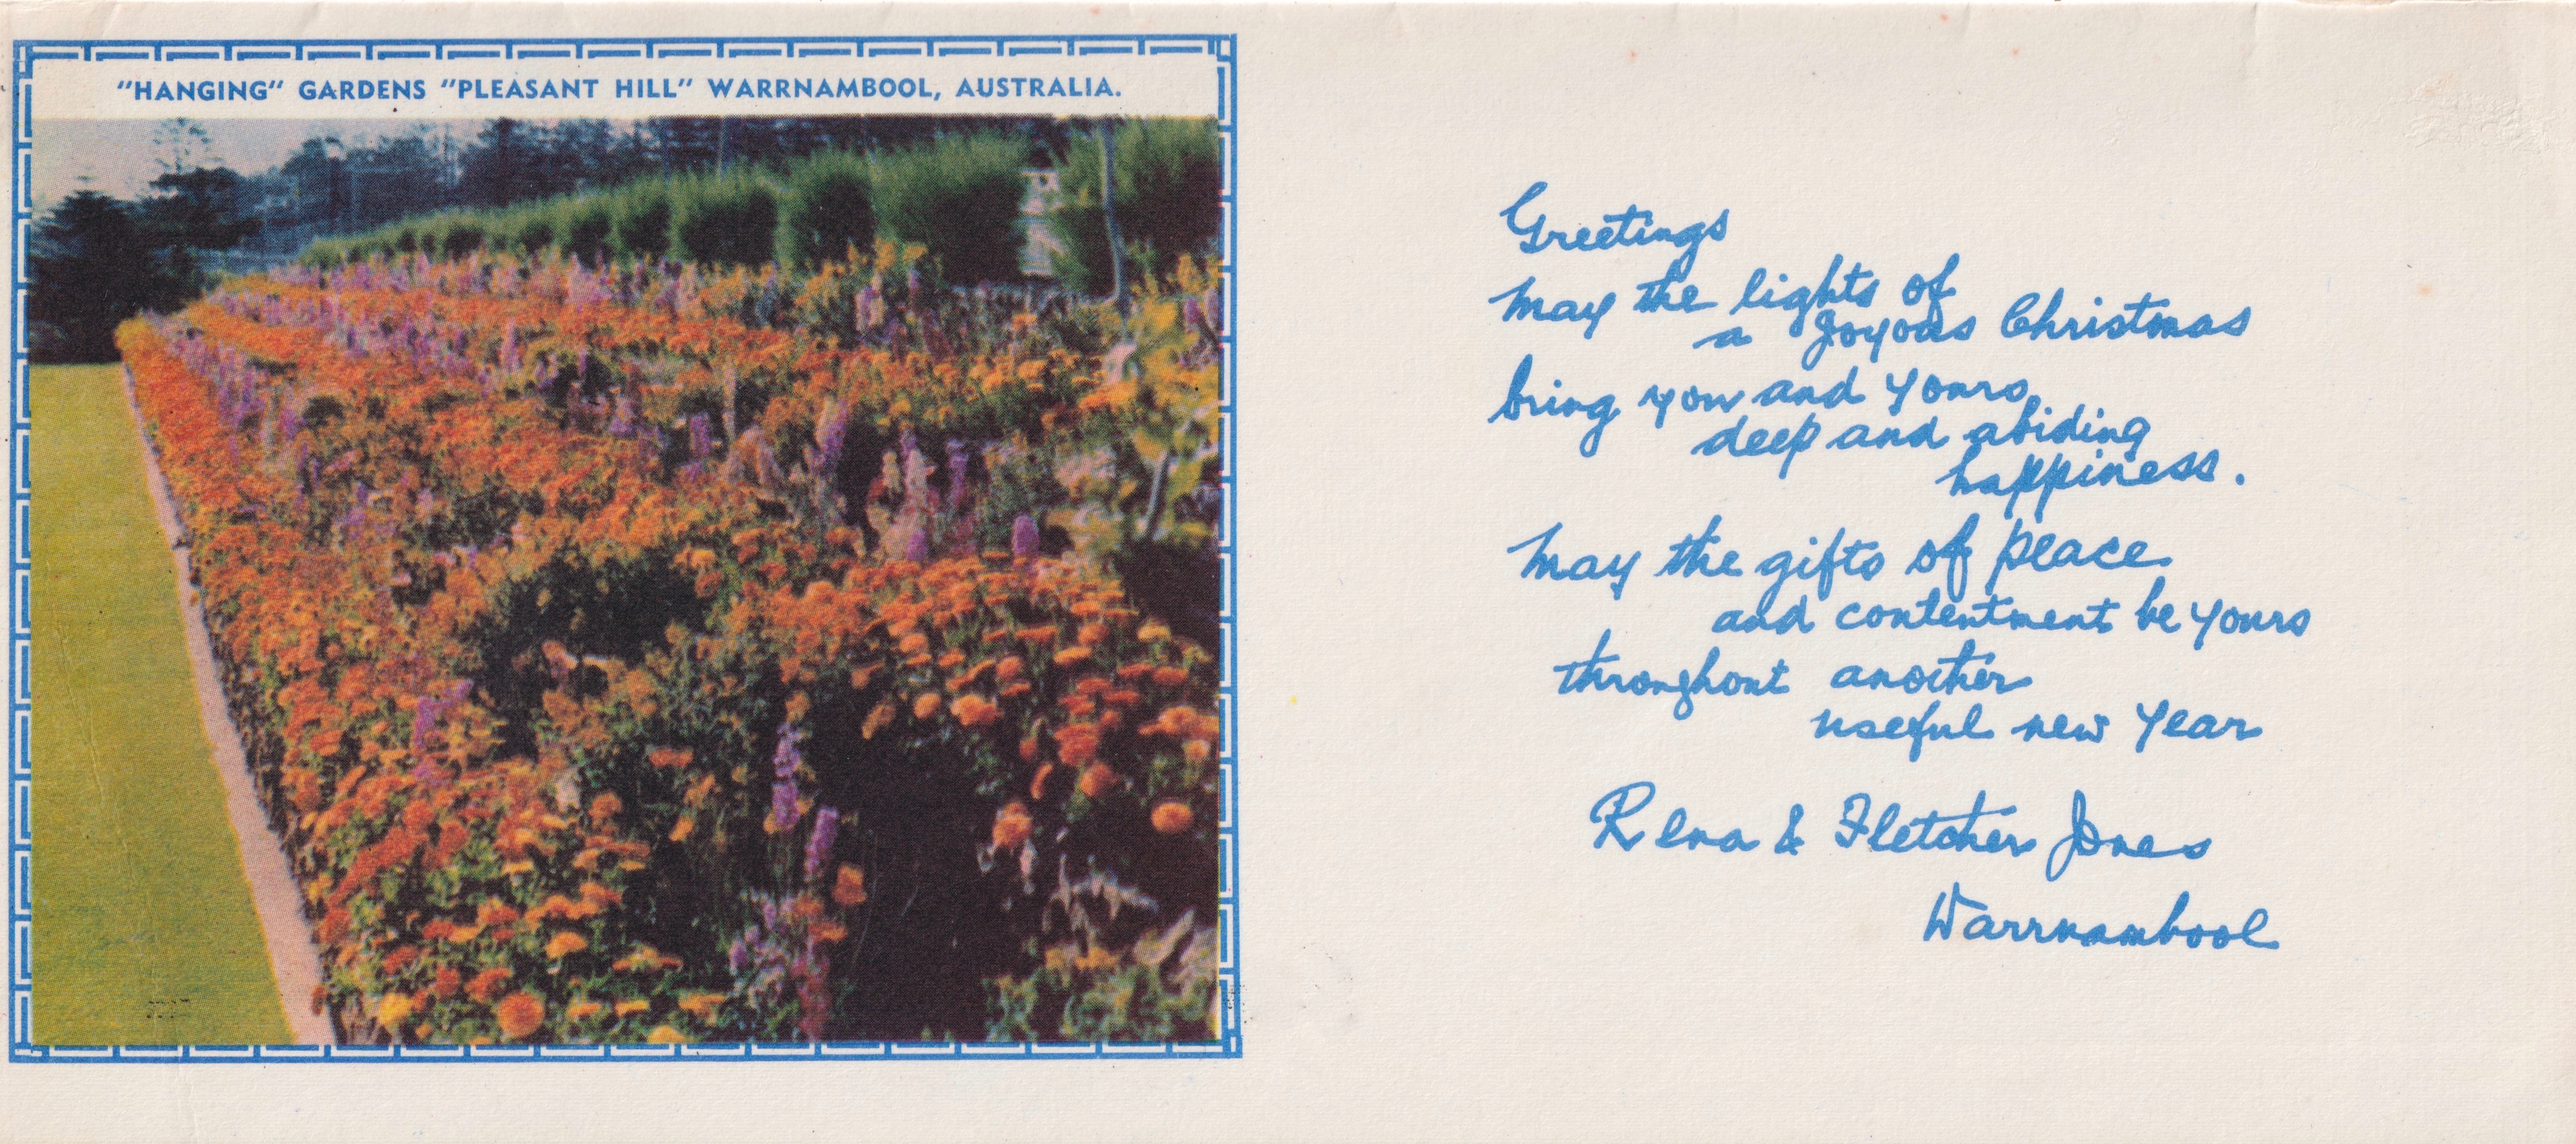 "HANGING" GARDENS "PLEASANT HILL" WARRNAMBOOL, AUSTRALIA.
Greetings
May the lights of
a Joyous Christmas
bring you and yours
deep and abiding
happiness.
May the gifts of peace
and contentment be yours
throughout another
useful new year
Rena & Fletcher Jones
Warrnambool